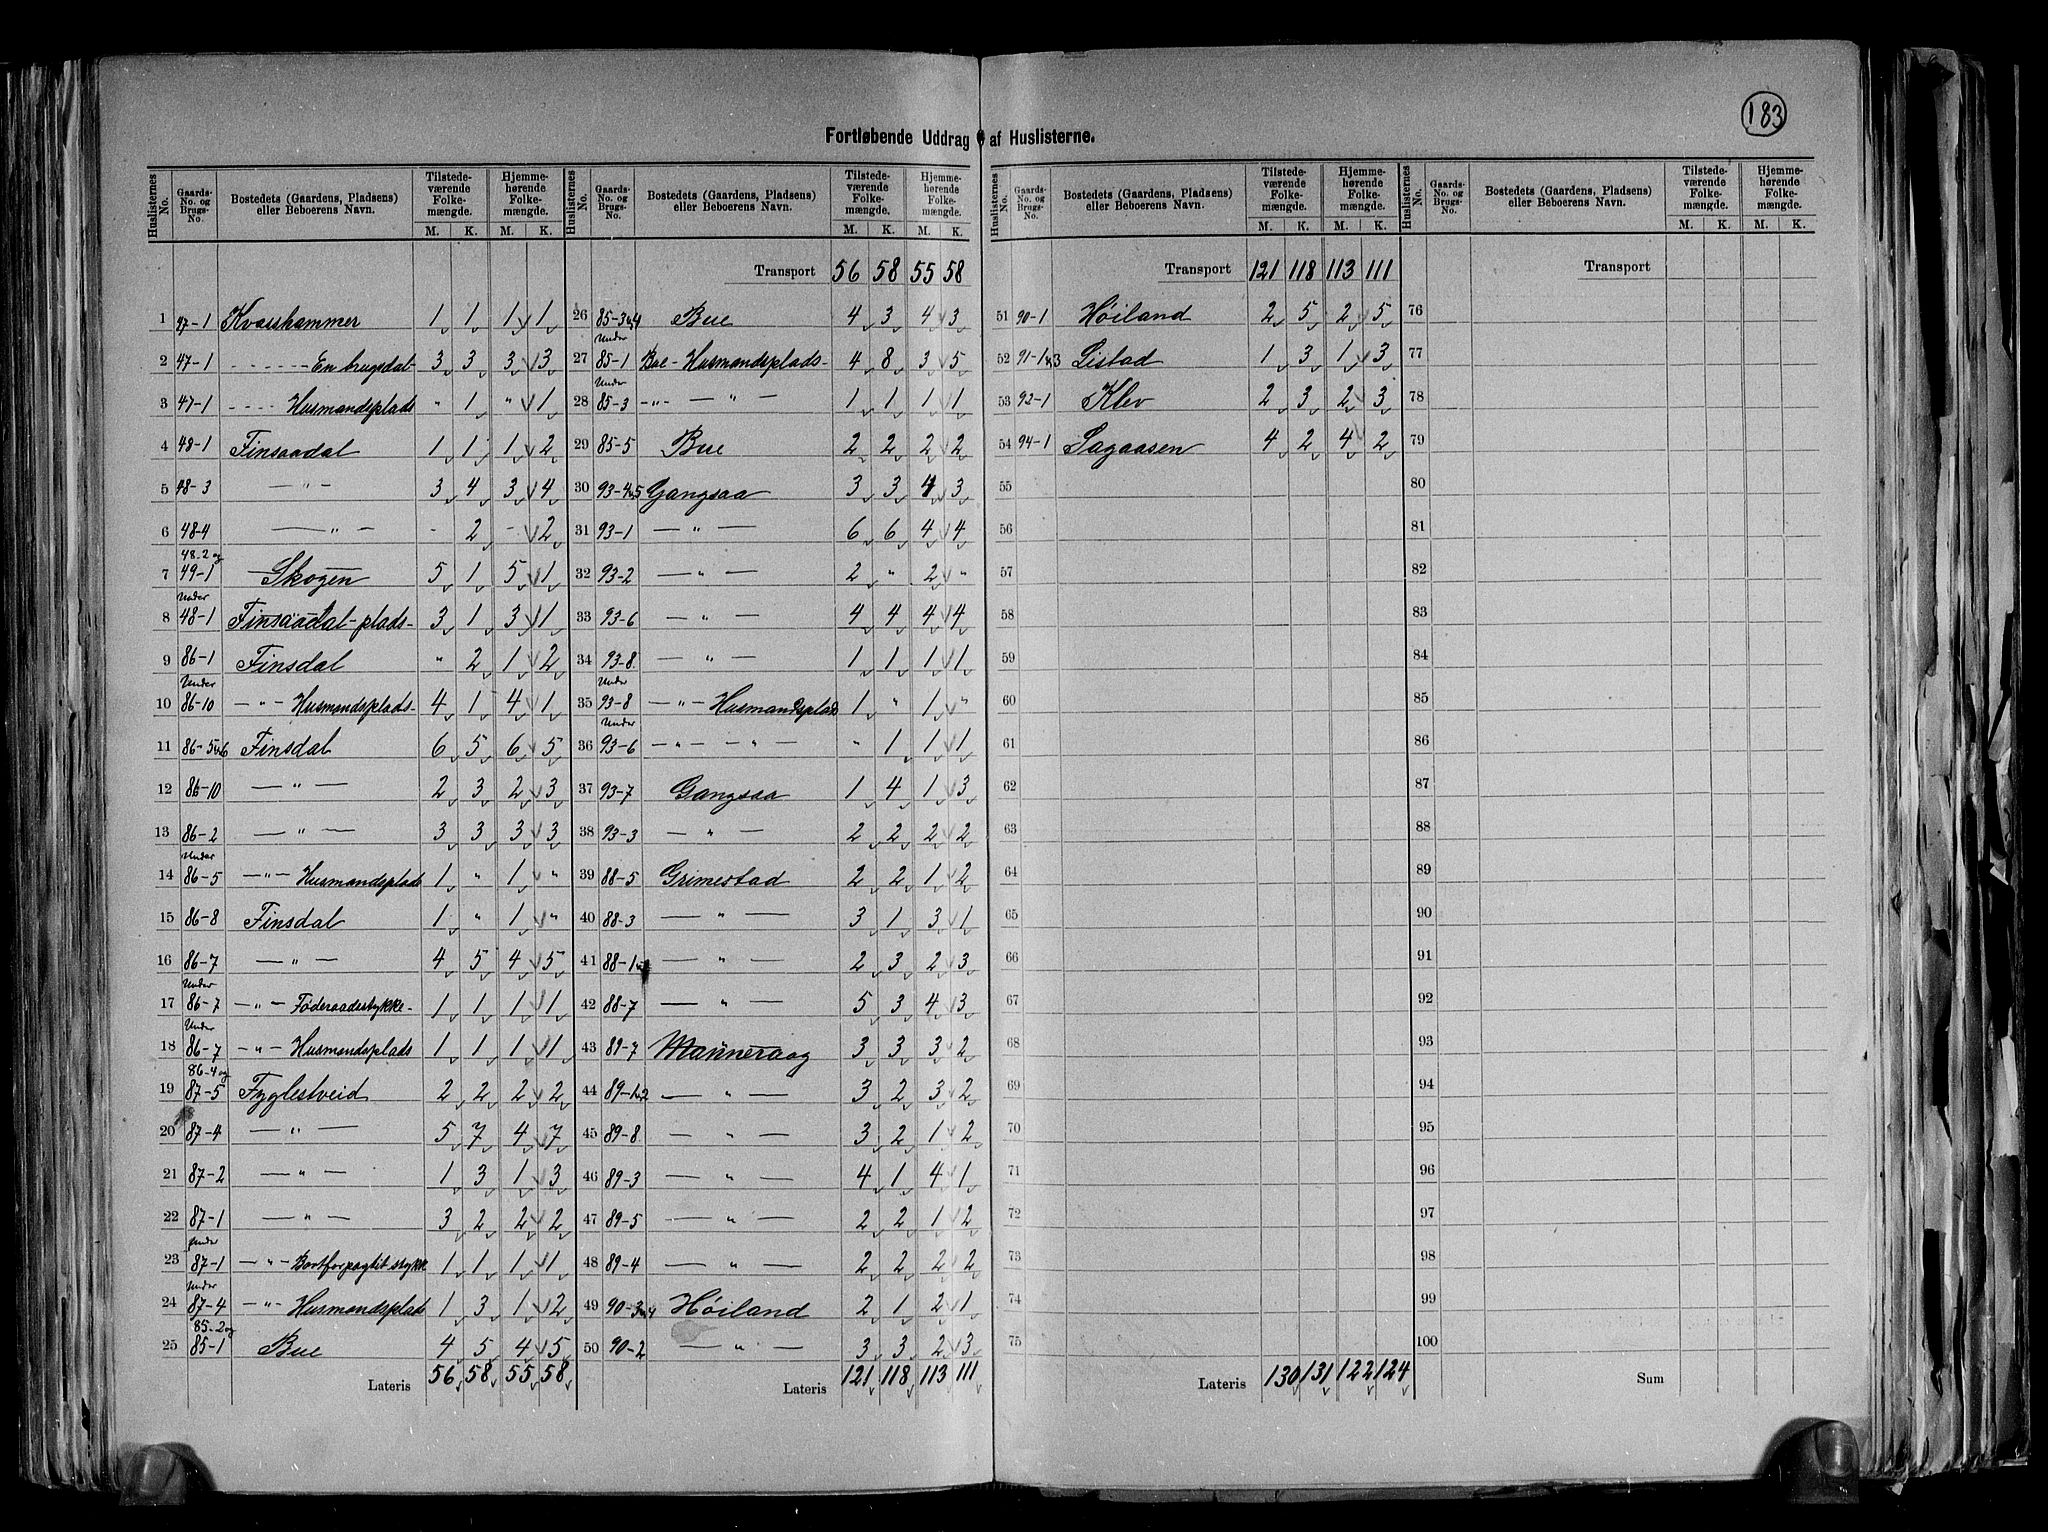 183
Fortløbende Uddrag af Huslisterne.
Huslisternes No. Gaards-No. og Brugs-No. Bostedets (Gaardens, Pladsens) eller Beboerens Navn. Tilstedeværende Folkemængde. M. K. Hjemmehørende Folkemængde. M. K.
1 47-1 Kvasshammer 1 1 1 1
2 47-1 - - - - - En brugsdal- 3 3 3 3
3 47-1 - - - - Husmandsplads " 1 " 1
4 48-1 Finsaadal 1 1 1 2
5 48-3 - " - 3 4 3 4
6 48-4 — " — - 2 - 2
7 48-2 og 49-1 Skogen 5 1 5 1
8 Under 48-1 Finsaadal-plads- 3 1 3 1
9 86-1 Finsdal " 2 1 2
10 Under 86-10 — " — Husmandsplads- 4 1 4 1
11 86-5 & 6 Finsdal 6 5 6 5
12 86-10 — " — 2 3 2 3
13 86-2 — " — 3 3 3 3
14 Under 86-5 — " — Husmandsplads 1 " 1 "
15 86-8 Finsdal 1 " 1 "
16 86-7 — " — 4 5 4 5
17 Under 86-7 — " — Føderaadsstykke- 1 1 1 1
18 Under 86-7 — " — Husmandsplads 1 1 1 1
19 86-4 og 87-5 Fyglestveid 2 2 2 2
20 87-4 — " — 5 7 4 7
21 87-2 — " — 1 3 1 3
22 87-1 — " — 3 2 2 2
23 Under 87-1 — " — Bortforpagtit stykk 1 1 1 1
24 Under 87-4 — " — Husmandsplads 1 3 1 2
25 85-2 og 85-1 Bue 4 5 4 5
Lateris 56 58 55 58
Huslisternes No. Gaards-No. og Brugs-No. Bostedets (Gaardens, Pladsens) eller Beboerens Navn. Tilstedeværende Folkemængde. M. K. Hjemmehørende Folkemængde. M. K.
Transport 56 58 55 58
26 85-3 & 4 Bue 4 3 4 3
27 Under 85-1 Bue - Husmandsplads- 4 8 3 5
28 Under 85-3 - " - — " — 1 1 1 1
29 85-5 Bue 2 2 2 2
30 93-4 & 5 Gangsaa 3 3 4 3
31 93-1 — " — 6 6 4 4
32 93-2 — " — 2 " 2 "
33 93-6 — " — 4 4 4 4
34 93-8 — " — 1 1 1 1
35 Under 93-8 — " — Husmandsplads 1 " 1 "
36 Under 93-6 — " — — " — " 1 1 1
37 93-7 Gangsaa 1 4 1 3
38 93-3 — " — 2 2 2 2
39 88-5 Grimestad 2 2 1 2
40 88-3 — " — 3 1 3 1
41 88-1 — " — 2 3 2 3
42 88-7 — " — 5 3 4 3
43 89-7 Manneraag 3 3 3 2
44 89-1 & 2 — " — 3 2 3 2
45 89-8 — " — 3 2 1 2
46 89-3 — " — 4 1 4 1
47 89-5 — " — 2 2 1 2
48 89-4 — " — 2 2 2 2
49 90-3 & 4 Høiland 2 1 2 1
50 90-2 — " — 3 3 2 3
Lateris 121 118 113 111
Huslisternes No. Gaards-No. og Brugs-No. Bostedets (Gaardens, Pladsens) eller Beboerens Navn. Tilstedeværende Folkemængde. M. K. Hjemmehørende Folkemængde. M. K.
Transport 121 118 113 111
51 90-1 Høiland 2 5 2 5
52 91-1 & 3 Listad 1 3 1 3
53 92-1 Klev 2 3 2 3
54 94-1 Sagaasen 4 2 4 2
55
56
57
58
59
60
61
62
63
64
65
66
67
68
69
70
71
72
73
74
75
Lateris 130 131 122 124
Huslisternes No. Gaards-No. og Brugs-No. Bostedets (Gaardens, Pladsens) eller Beboerens Navn. Tilstedeværende Folkemængde. M. K. Hjemmehørende Folkemængde. M. K.
Transport
76
77
78
79
80
81
82
83
84
85
86
87
88
89
90
91
92
93
94
95
96
97
98
99
100
Sum